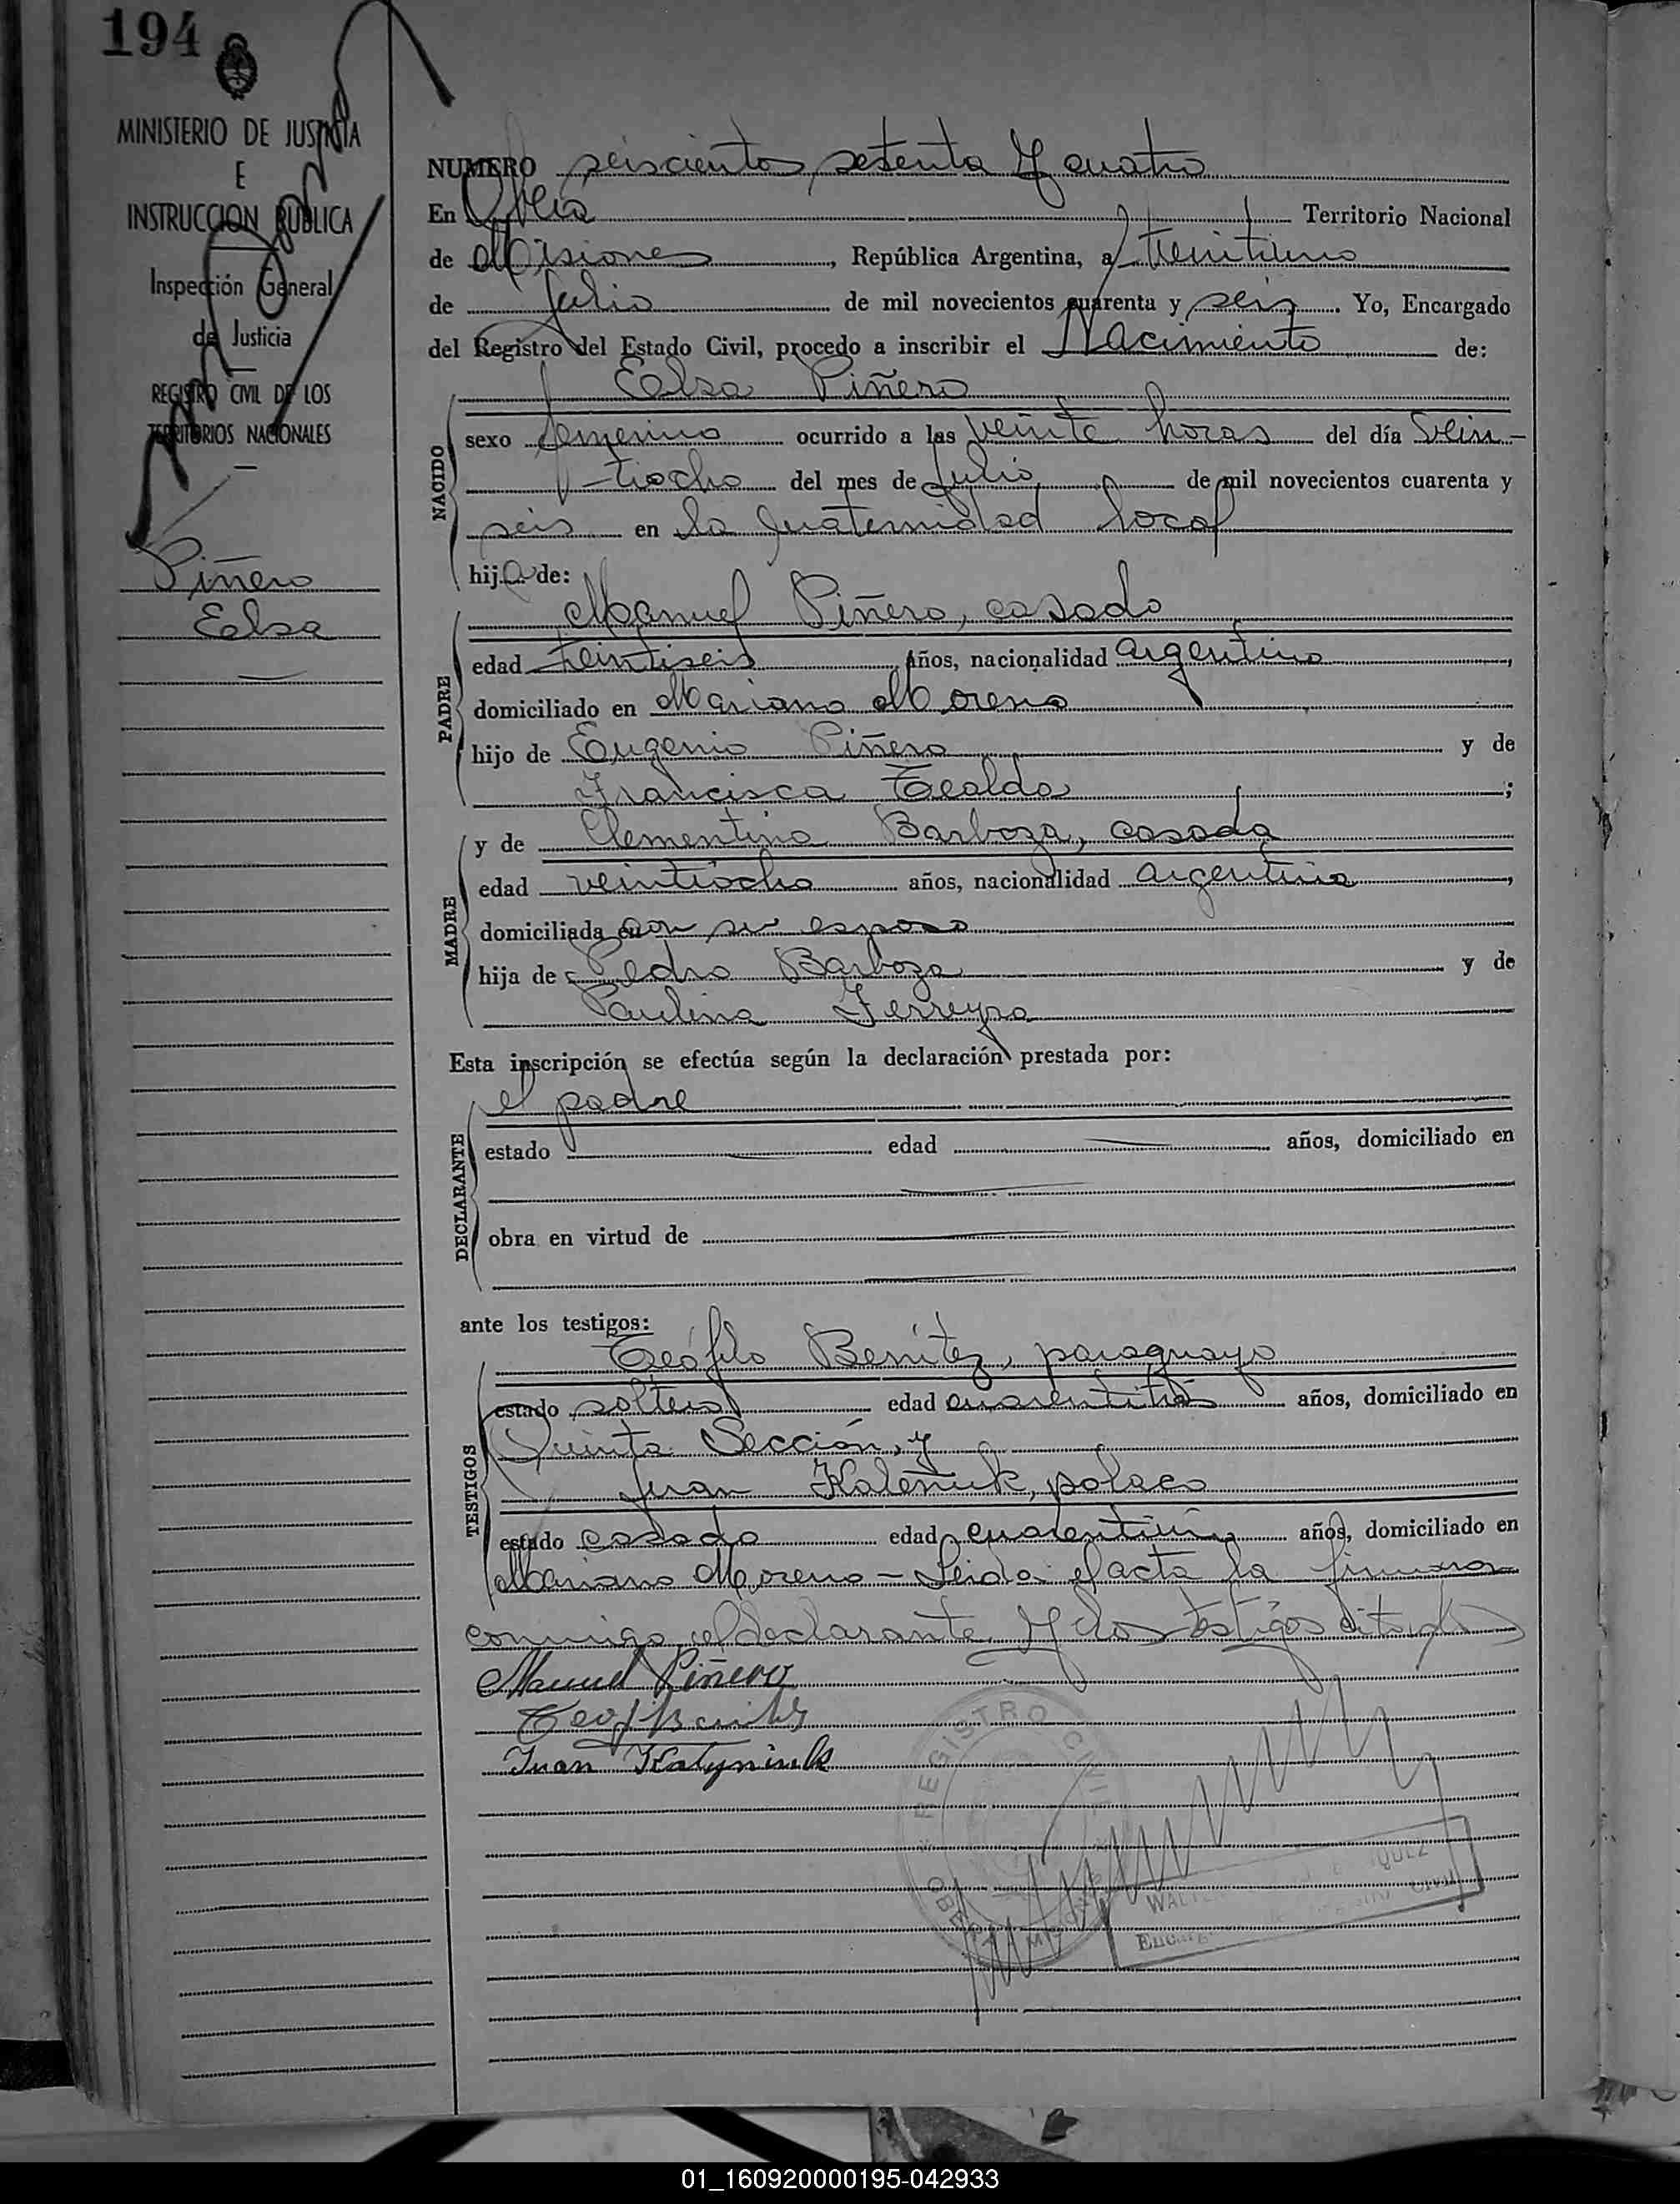 194
MINISTERIO DE JUSTICIA
E
INSTRUCCION PUBLICA
Inspección General
de Justicia
REGISTRO CIVIL DE LOS
TERRITORIOS NACIONALES
Piñero
Elsa
NUMERO seiscientos setenta y cuatro
En Oberá Territorio Nacional
de Misiones, República Argentina, a treintiuno
de Julio de mil novecientos cuarenta y seis. Yo, Encargado
del Registro del Estado Civil, procedo a inscribir el Nacimiento de:
NACIDO
Elsa Piñero
sexo femenino ocurrido a las veinte horas del día vein-
-tiocho del mes de Julio de mil novecientos cuarenta y
seis en la maternidad local
hija de:
PADRE
Manuel Piñero, casado
edad veintiseis años, nacionalidad argentino,
domiciliado en Mariano Moreno
hijo de Eugenio Piñero y de
Francisca Tealdo;
MADRE
y de Clementina Barboza, casada
edad veintiocho años, nacionalidad argentina,
domiciliada con su esposo
hija de Pedro Barboza y de
Paulina Ferreyra
Esta inscripción se efectúa según la declaración prestada por:
DECLARANTE
el padre
estado edad años, domiciliado en
obra en virtud de
ante los testigos:
TESTIGOS
Teófilo Benítez, paraguayo
estado soltero edad cuarentitres años, domiciliado en
Quinta Sección, y
Juan Kaleñuk, polaco
estado casado edad cuarentiun años, domiciliado en
Mariano Moreno - Leida el acta la firmaron
conmigo, el declarante y los testigos citados
Manuel Piñero
Teof Benitez
Juan Kalyniuk
REGISTRO CIVIL
OBERA MISIONES
WAL QUEZ
Encarg Civil
01_160920000195-042933